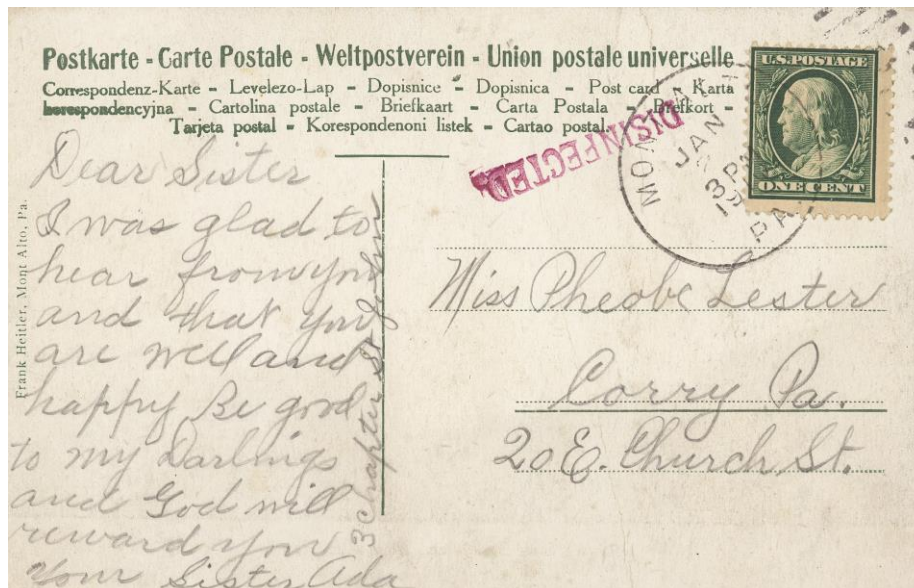 Postkarte - Carte Postale - Weltpostverein - Union postale universelle
Correspondenz-Karte - Levelezo-Lap - Dopisnice - Dopisnica - Post card - Karta
korespondencyjna - Cartolina postale - Briefkaart - Carta Postala - Brefkort -
Tarjeta postal - Korespondenoni listek - Cartao postal.
DISINFECTED.
MON
JAN
3 PM
19
PA.
U.S. POSTAGE
ONE CENT
Dear Sister
I was glad to
hear from you
and that you
are well and
happy Be good
to my Darlings
and God will
reward you
Your Sister Ada
3 Chapter St John
Frank Heitler, Mont Alto, Pa.
Miss Pheobe Lester
Corry Pa.
20 E. Church St.